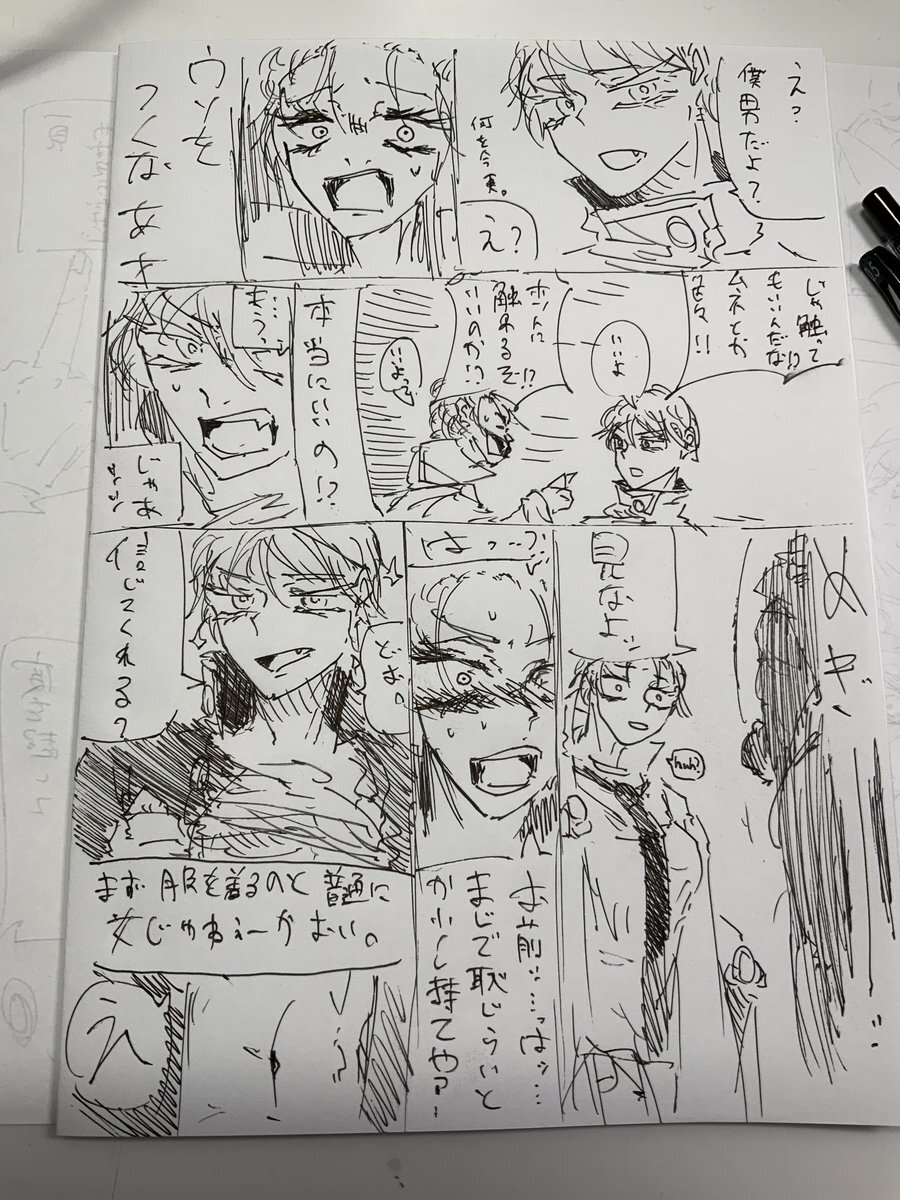 え?
僕男だよ?
何を今更。
え?
ウソを
つくなぁぁ
じゃ触って
もいいんだな!?
ムネとか
色々!!
いいよ
ホントに
触れるぞ!?
いいのか!?
いいよって。
本当にいいの!?
も…もう?
じゃあ
めき゛
見なよ。
huh?
はっ…?
お前…っはッ…
まじで恥じらいと
か少し持てやァー
どお。
信じてくれる?
まず服を着るのと普通に
女じゃねぇーかおい。